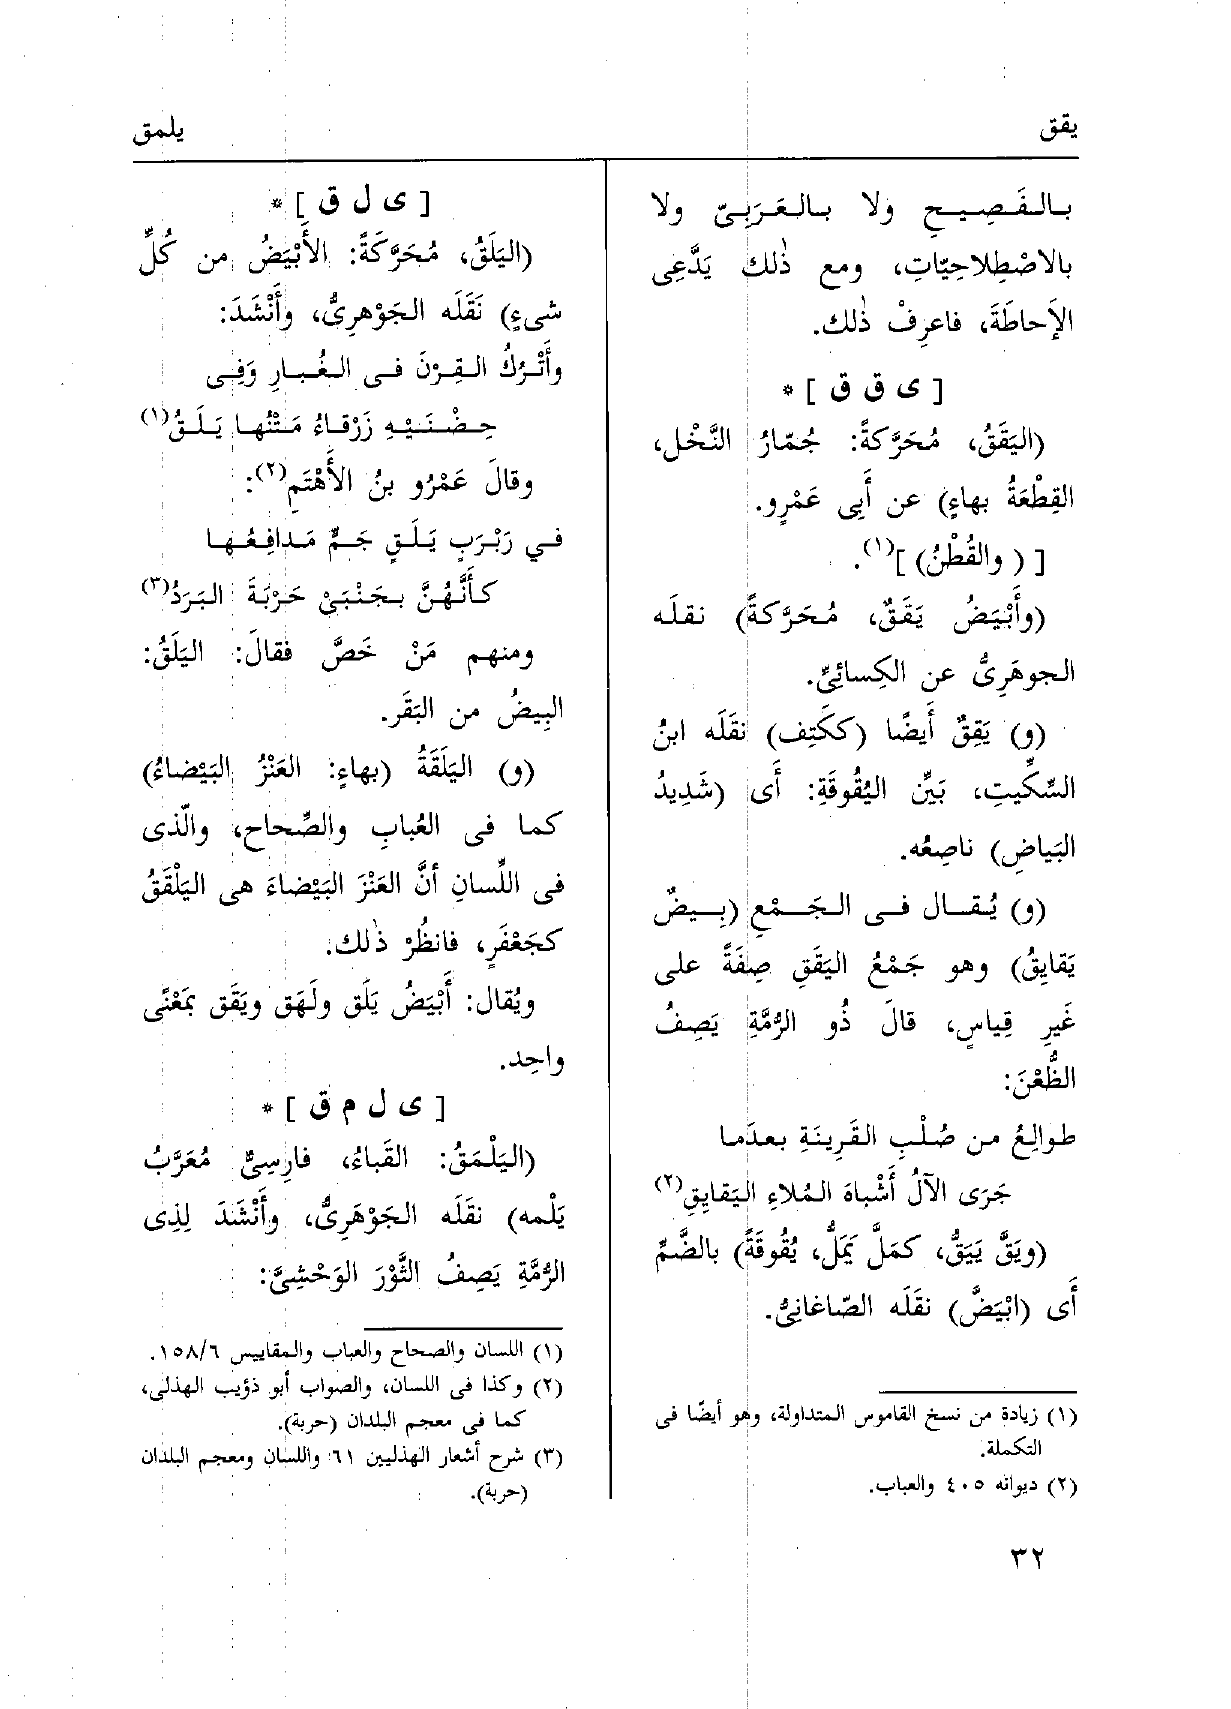 يقق
يلمق
بالفَصِيحِ ولا بالعَرَبِىّ ولا
بالاصْطِلاحِيّاتِ، ومع ذٰلك يَدَّعِى
الإَحاطَةَ، فاعرِفْ ذٰلك.
[ ى ق ق ] *
(اليَقَقُ، مُحَرَّكةً: جُمّارُ النَّخْلِ،
القِطْعَةُ بهاءٍ) عن أَبِى عَمْرٍو.
[ ( والقُطْنُ) ](١).
(وأَبْيَضُ يَقَقٌ، مُحَرَّكةً) نقلَه
الجوهَرِىُّ عن الكِسائِىِّ.
(و) يَقِقٌ أَيضًا (ككَتِف) نقَلَه ابنُ
السِّكِّيتِ، بَيِّن اليُقُوقَةِ: أَى (شَدِيدُ
البَياضِ) ناصِعُه.
(و) يُقال فى الجَمْعِ (بِيضٌ
يَقايِقُ) وهو جَمْعُ اليَقَقِ صِفَةً على
غَيرِ قِياسٍ، قالَ ذُو الرُّمَّةِ يَصِفُ
الظُّعْنَ:
طوالِعُ من صُلْبِ القَرِينَةِ بعدَما
جَرَى الآلُ أَشْباهَ المُلاءِ اليَقايِقِ(٢)
(ويَقَّ يَيَقُّ، كمَلَّ يَمَلُّ، يُقُوقَةً) بالضَّمِّ
أَى (ابْيَضَّ) نقَلَه الصّاغانِىُّ.
(١) زيادة من نسخ القاموس المتداولة، وهو أيضًا فى
التكملة.
(٢) ديوانه ٤٠٥ والعباب.
[ ى ل ق ] *
(اليَلَقُ، مُحَرَّكَةً: الأَبْيَضُ من كُلِّ
شىءٍ) نَقَلَه الجَوْهرِىُّ، وأَنْشَدَ:
وأَتْرُكُ القِرْنَ فى الغُبارِ وَفِى
حِضْنَيْهِ زَرْقاءُ مَتْنُها يَلَقُ(١)
وقالَ عَمْرُو بنُ الأَهْتَمِ(٢):
في رَبْرَبٍ يَلَقٍ جَمٍّ مَدافِعُها
كأَنَّهُنَّ بجَنْبَىْ حَرْبَةَ البَرَدُ(٣)
ومنهم مَنْ خَصَّ فقالَ: اليَلَقُ:
البِيضُ من البَقَر.
(و) اليَلَقَةُ (بهاءٍ: العَنْزُ البَيْضاءُ)
كما فى العُبابِ والصِّحاح، والّذى
فى اللِّسانِ أنَّ العَنْزَ البَيْضاءَ هى اليَلْقَقُ
كجَعْفَرٍ، فانظُرْ ذٰلك.
ويُقال: أَبْيَضُ يَلَق ولَهَق ويَقَق بمَعْنًى
واحِد.
[ ى ل م ق ] *
(اليَلْمَقُ: القَباءُ، فارِسِىٌّ مُعَرَّبُ
يَلْمه) نقَلَه الجَوْهَرِىُّ، وأَنْشَدَ لِذِى
الرُّمَّةِ يَصِفُ الثَّوْرَ الوَحْشِىَّ:
(١) اللسان والصحاح والعباب والمقاييس ١٥٨/٦.
(٢) وكذا فى اللسان، والصواب أبو ذؤيب الهذلى،
كما فى معجم البلدان (حربة).
(٣) شرح أشعار الهذليين ٦١ واللسان ومعجم البلدان
(حربة).
٣٢